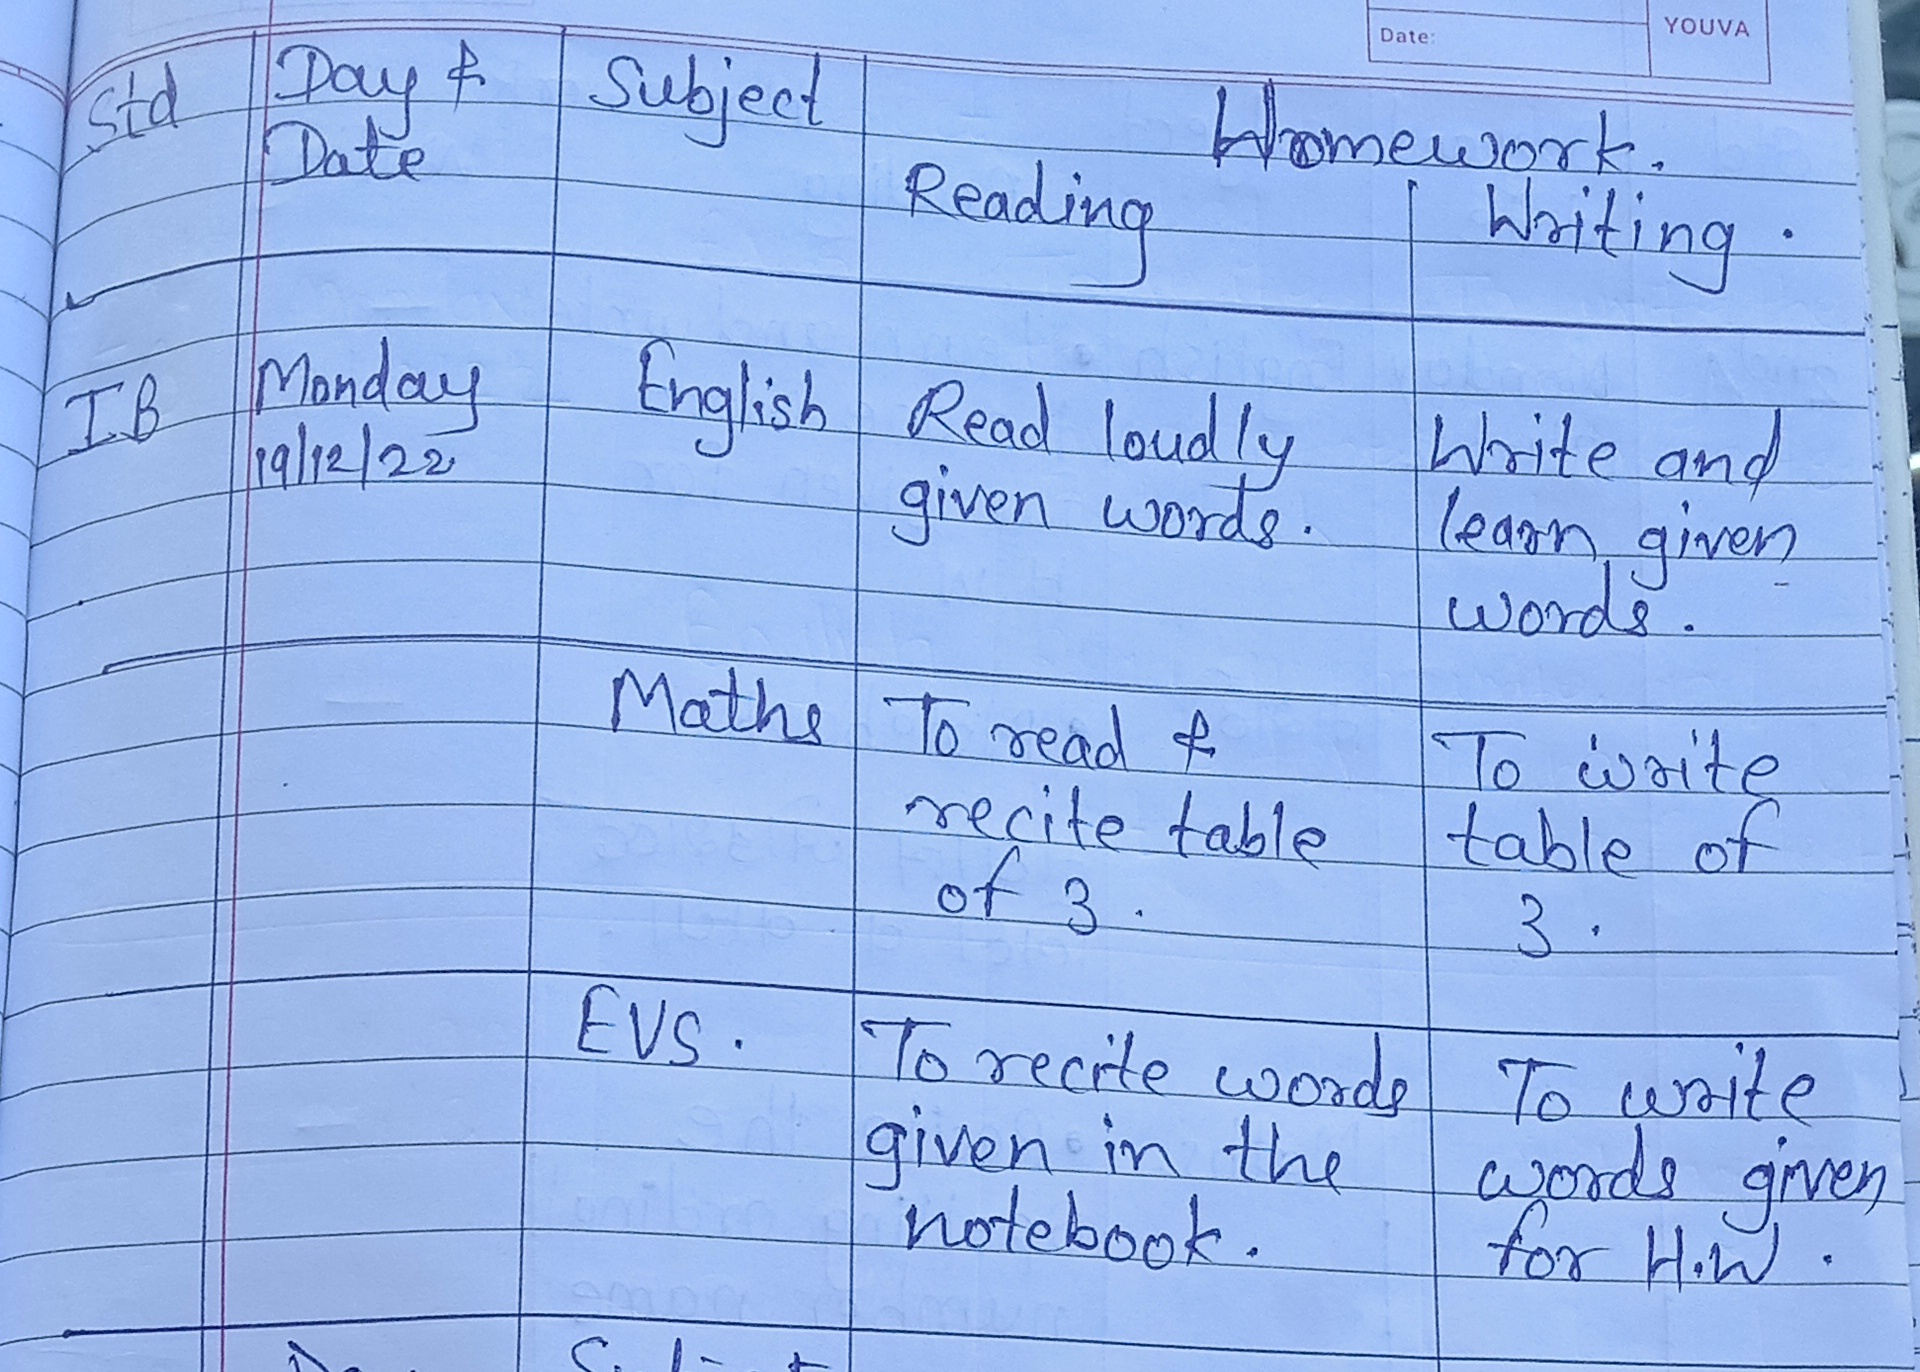 Date:
YOUVA
Std
Day &
Date
Subject
Homework.
Reading
Writing.
IB
Monday
19/12/22
English
Read loudly
given words.
Write and
learn given
words.
Maths
To read &
recite table
of 3.
To write
table of
3.
EVS.
To recite words
given in the
notebook.
To write
words given
for H.W.